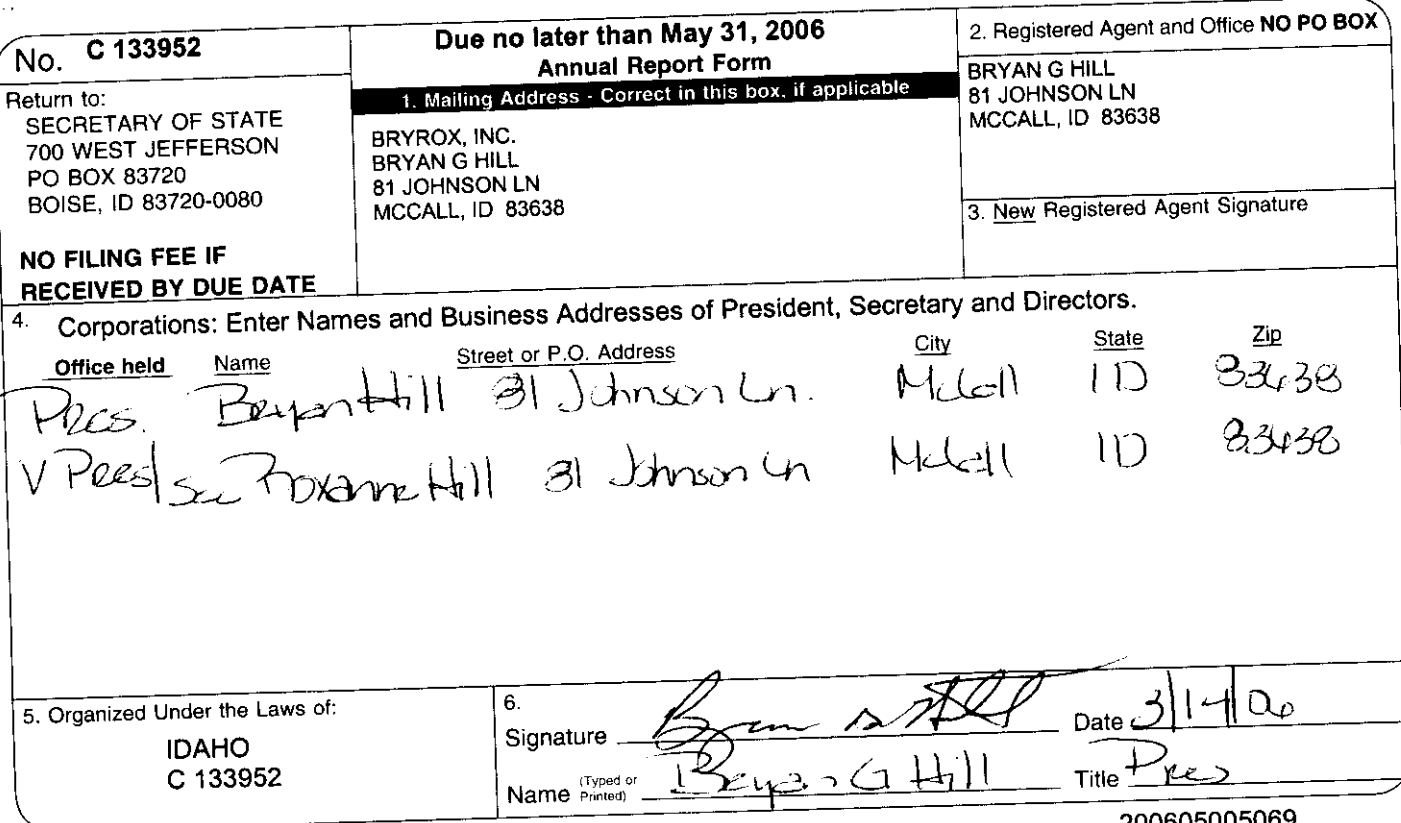 No. C 133952
Return to:
SECRETARY OF STATE
700 WEST JEFFERSON
PO BOX 83720
BOISE, ID 83720-0080
NO FILING FEE IF
RECEIVED BY DUE DATE
Due no later than May 31, 2006
Annual Report Form
1. Mailing Address - Correct in this box, if applicable
BRYROX, INC.
BRYAN G HILL
81 JOHNSON LN
MCCALL, ID 83638
2. Registered Agent and Office NO PO BOX
BRYAN G HILL
81 JOHNSON LN
MCCALL, ID 83638
3. New Registered Agent Signature
4. Corporations: Enter Names and Business Addresses of President, Secretary and Directors.
Office held Name Street or P.O. Address City State Zip
Pres. Bryan Hill 81 Johnson Ln. McCall ID 83638
V Pres/Sec Roxanne Hill 81 Johnson Ln McCall ID 83638
5. Organized Under the Laws of:
IDAHO
C 133952
6.
Signature Bryan G Hill Date 3/14/06
Name (Typed or Printed) Bryan G Hill Title Pres
200605005069